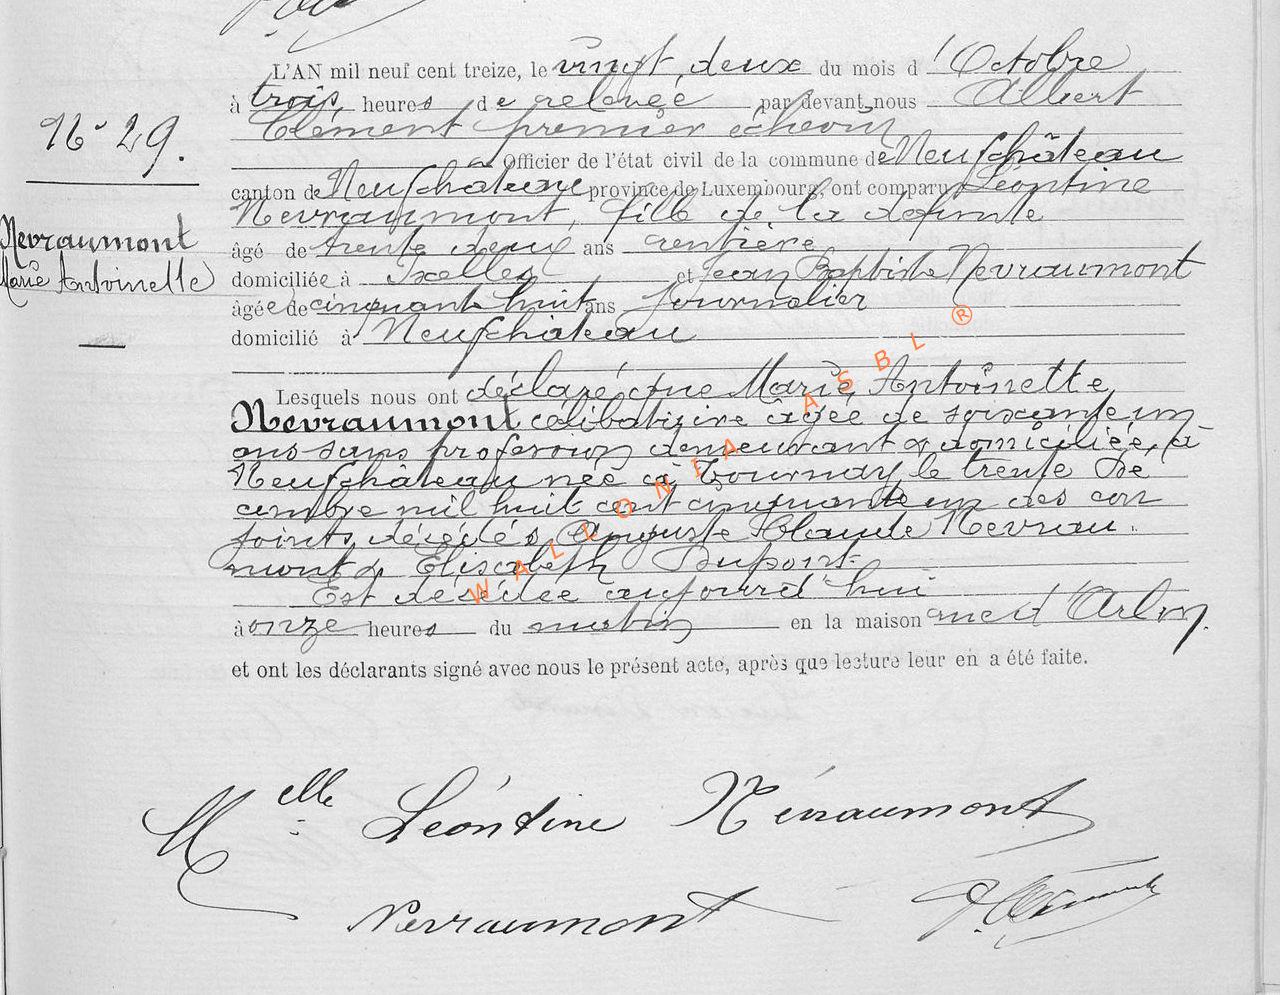 L'AN mil neuf cent treize, le vingt deux du mois d'Octobre
à trois heures de relevée par devant nous Albert
Clément premier échevin
Officier de l'état civil de la commune de Neufchâteau
canton de Neufchâteau province de Luxembourg, ont comparu Léontine
Nevraumont, fille de la défunte
âgé de trente deux ans rentière
domiciliée à Ixelles et Jean Baptiste Nevraumont
âgée de cinquante huit ans journalier
domicilié à Neufchâteau
Lesquels nous ont déclaré que Marie Antoinette
Nevraumont célibataire âgée de soixante un
ans sans profession demeurant & domiciliée à
Neufchâteau née à Tournay le trente Dé
cembre mil huit cent cinquante un des con
joints décédés Auguste Claude Nevrau
mont & Elisabeth Dupont.
Est décédée aujourd'hui
à onze heures du matin en la maison rue d'Arlon.
et ont les déclarants signé avec nous le présent acte, après que lecture leur en a été faite.
Melle Léontine Névraumont
Nevraumont
No 29.
Nevraumont
Marie Antoinette
WALLONIA ASBL ®